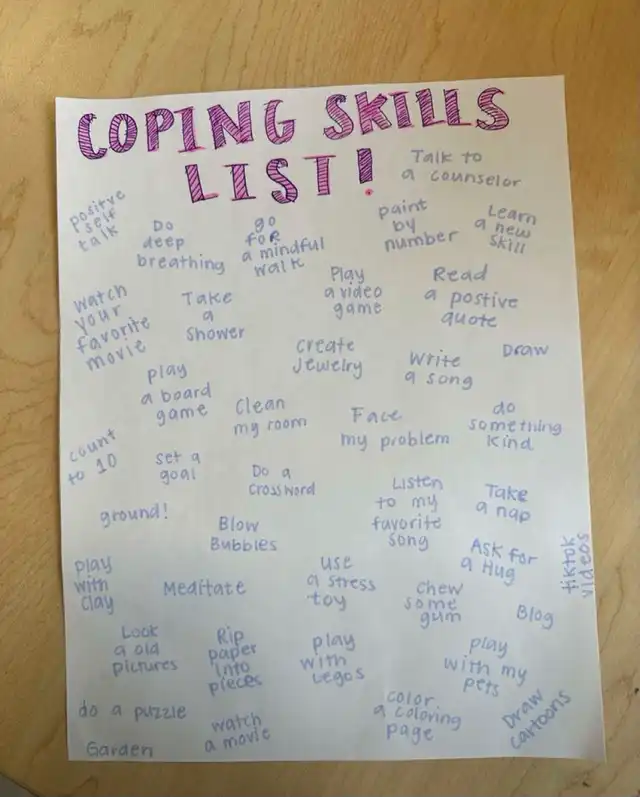 COPING SKILLS
LIST!
Talk to
a counselor
positve
self
talk
Do
deep
breathing
go
for
a mindful
walk
paint
by
number
Learn
a new
skill
watch
your
favorite
movie
Take
a
shower
Play
a video
game
Read
a postive
quote
create
jewelry
Write
a song
Draw
play
a board
game
Clean
my room
Face
my problem
do
something
kind
count
to 10
set a
goal
Do a
crossword
Listen
to my
favorite
song
Take
a nap
ground!
Blow
Bubbles
Ask for
a Hug
tiktok
videos
play
with
clay
Meditate
use
a stress
toy
chew
some
gum
Blog
Look
a old
pictures
Rip
paper
into
pieces
play
with
Legos
play
with my
pets
do a puzzle
watch
a movie
color
a coloring
page
Draw
cartoons
Garden